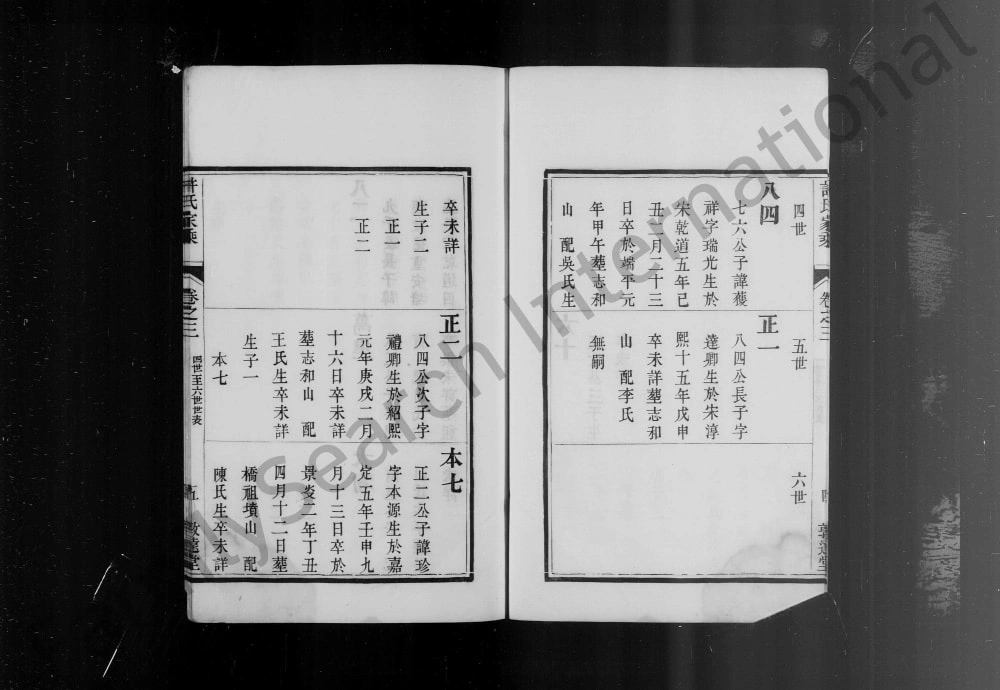 許氏家乘
卷之三
四世
五世
六世
八四
七六公子諱䕶
祥字瑞光生於
宋乾道五年己
丑二月二十三
日卒於端平元
年甲午塟志和
山 配吳氏生
正一
八四公長子字
達卿生於宋淳
熙十五年戊申
卒未詳塟志和
山 配李氏
無嗣
卒未詳
生子二
正一
正二
正二
八四公次子字
禮卿生於紹熙
元年庚戌二月
十六日卒未詳
塟志和山 配
王氏生卒未詳
生子一
本七
本七
正二公子諱珍
字本源生於嘉
定五年壬申九
月十三日卒於
景炎二年丁丑
四月十二日塟
橋祖墳山 配
陳氏生卒未詳
許氏家乘
卷之三
四世至六世世表
五
敦遠堂
FamilySearch International